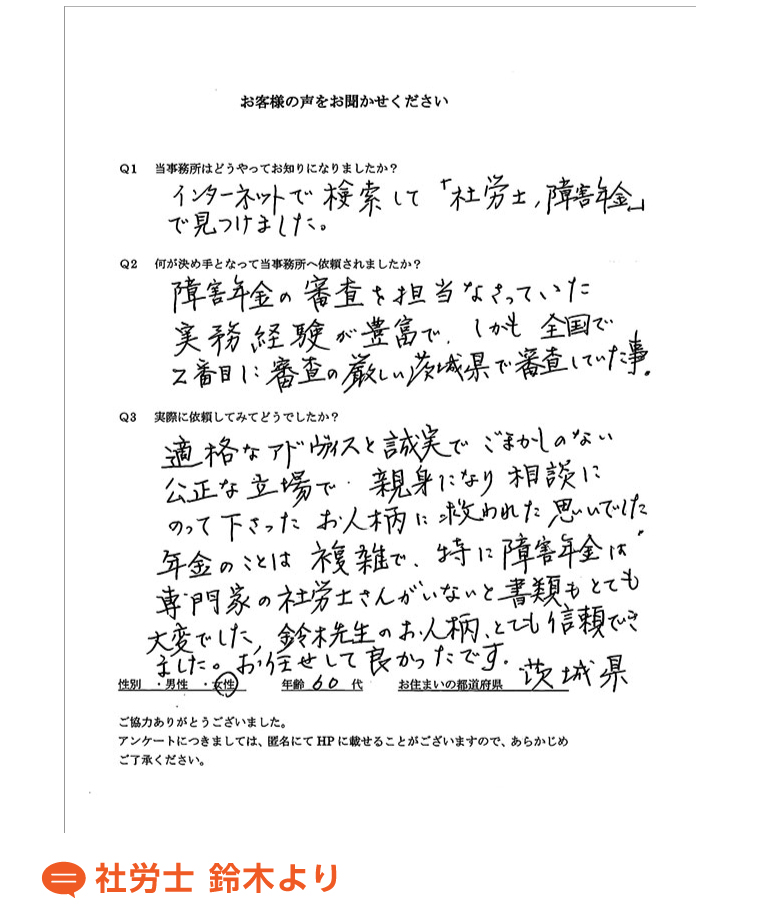 お客様の声をお聞かせください
Q1 当事務所はどうやってお知りになりましたか？
インターネットで検索して「社労士,障害年金」
で見つけました。
Q2 何が決め手となって当事務所へ依頼されましたか？
障害年金の審査を担当なさっていた
実務経験が豊富で、しかも全国で
2番目に審査の厳しい茨城県で審査していた事。
Q3 実際に依頼してみてどうでしたか？
適格なアドヴァイスと誠実でごまかしのない
公正な立場で、親身になり相談に
のって下さったお人柄に救われた思いでした
年金のことは複雑で、特に障害年金は
専門家の社労士さんがいないと書類もとても
大変でした、鈴木先生のお人柄、とても信頼でき
ました。お任せして良かったです。
性別 ・男性 ・女性 年齢 60 代 お住まいの都道府県 茨城県
ご協力ありがとうございました。
アンケートにつきましては、匿名にて HP に載せることがございますので、あらかじめ
ご了承ください。
社労士 鈴木より